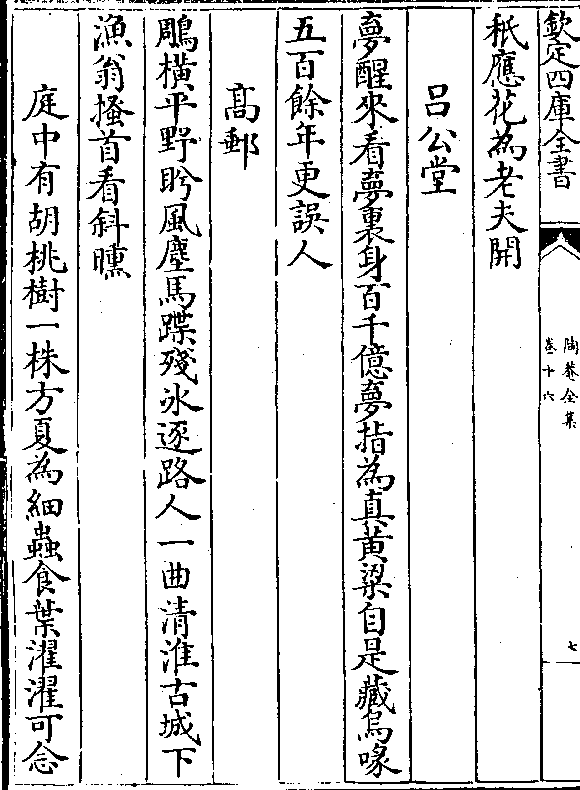 欽定四庫全書
陶菴全集
卷十六
七
秖應花為老夫開
吕公堂
夢醒來看夢裏身百千億夢指為真黄粱自是藏烏喙
五百餘年更誤人
髙郵
鵰横平野盻風塵馬蹀殘氷逐路人一曲清淮古城下
漁翁搔首看斜曛
庭中有胡桃樹一株方夏為細蟲食葉濯濯可念